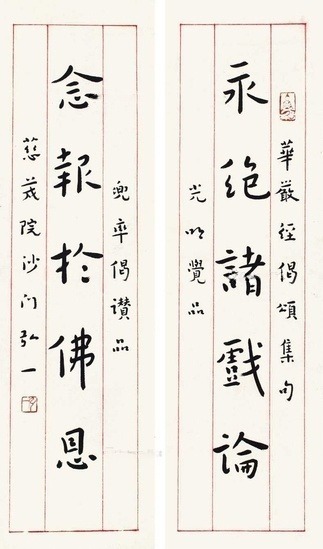 華嚴經偈頌集句
永絕諸戲論
光明覺品
兜率偈讚品
念報於佛恩
慈茂院沙门弘一